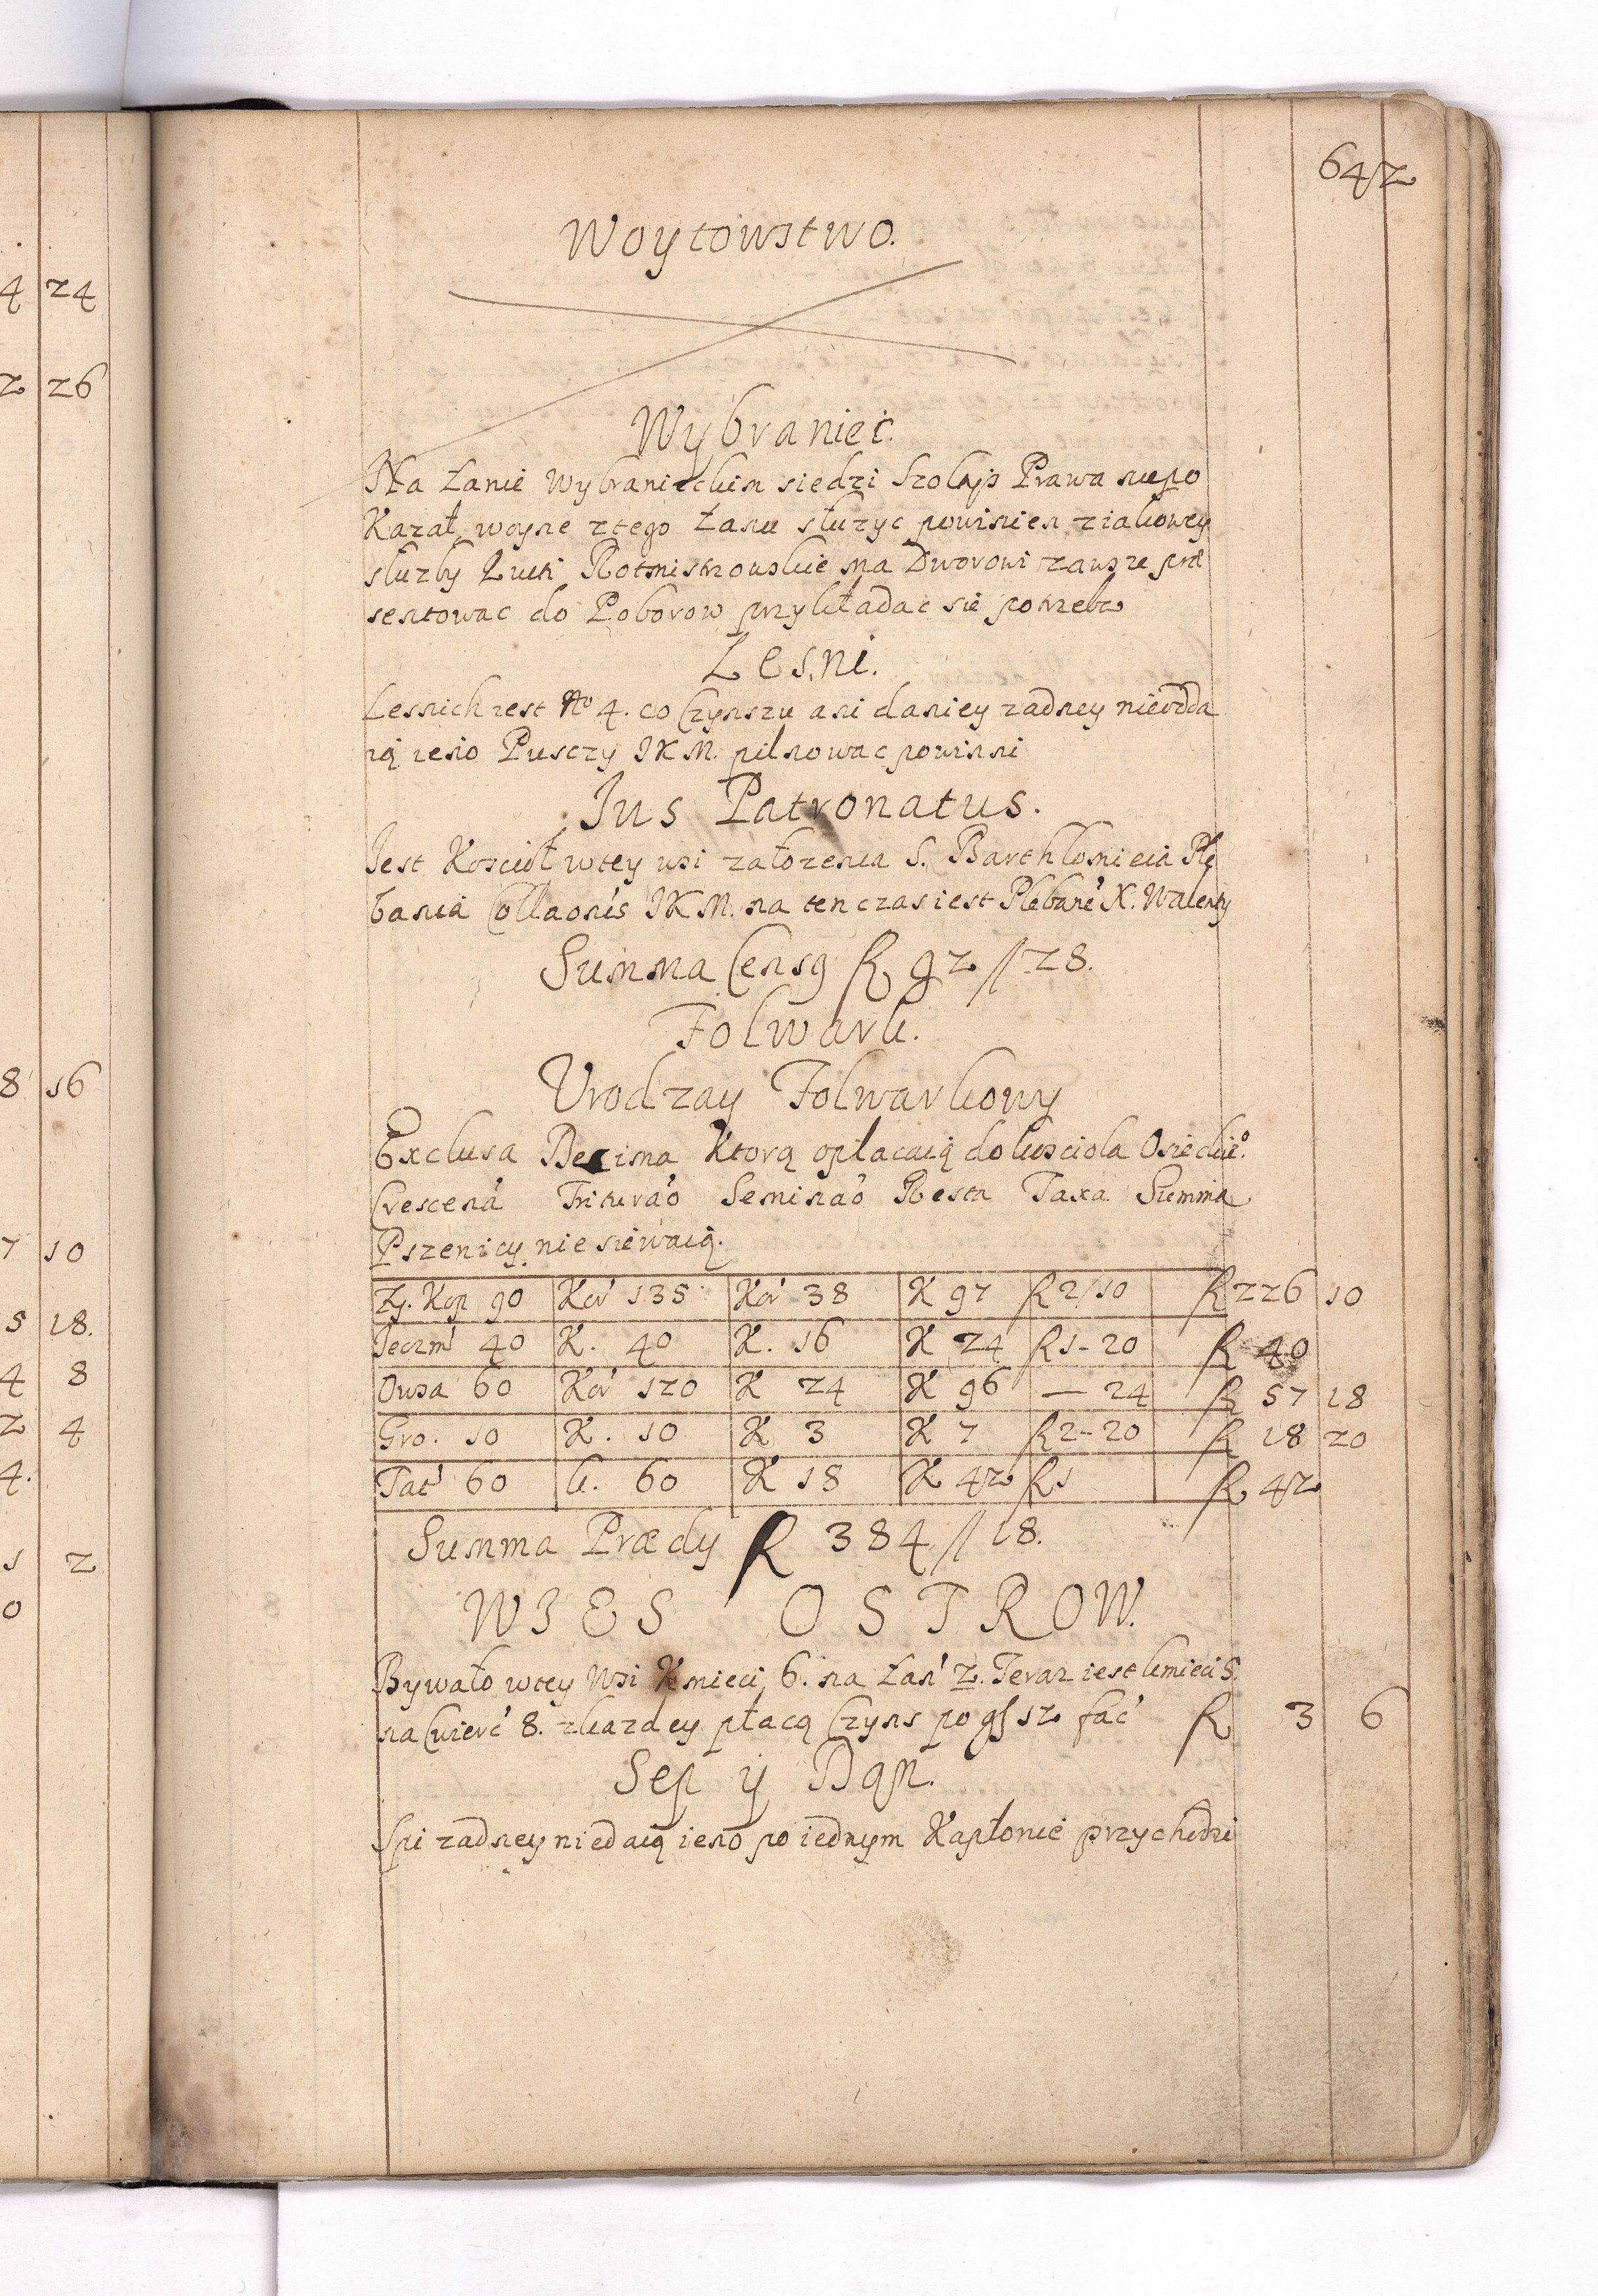 642
Woytowstwo.
Wybraniec.
Na Łanie Wybranieckim siedzi Prawa niepo
Kazał, woyne ztego Łanu służyc powinien ziakowey
służby Rotmistrzowskie ma Dworowi zawsze præ
sentowac do Poborow przykładac się potrzeba
Lesni.
Lesnich iest No 4. co Czynszu ani daniey zadney nieodda
ią ieno Pusczy JKM. pilnowac powinni
Jus Patronatus.
Jest Kosciół wtey wsi załozenia S. Barthłomieia Ple
bania Collaonis JKM. na ten czas iest Pleban̄ X. Walenty
Summa Censg fl 92 // 28.
Folwark.
Urodzay Folwarkowy
Exclusa Decima Ktorą opłacaią do kosciola Osieckie°.
Crescen̄ Triturao Seminao Resta Taxa Summa
Pszenicy nie siewaią.
Zy. Kop 90 Kor 135 Kor 38 K 97 fl 2/10 fl 226 10
Jeczm 40 K. 40 K. 16 K 24 fl 1-20 fl 40
Owsa 60 Kor 120 K 24 K 96 — 24 fl 57 18
Gro. 10 K. 10 K 3 K 7 fl 2-20 fl 18 20
Tat 60 k. 60 K 18 K 42 fl 1 fl 42
Summa Prædy fl 384 // 18.
WIES OSTROW.
Bywało wtey Wsi Kmieci 6. na Łan 2. Teraz iest kmieci 5.
na Cwierc 8. zkazdey płacą Czyns po gl 12 fac fl 3 6
Sep y Dan.
Spi zadney niedaią ieno po iednym Kapłonie przychodzi
4 24
2 26
8 16
7 10
5 18.
4 8
2 4
4.
1 2
0